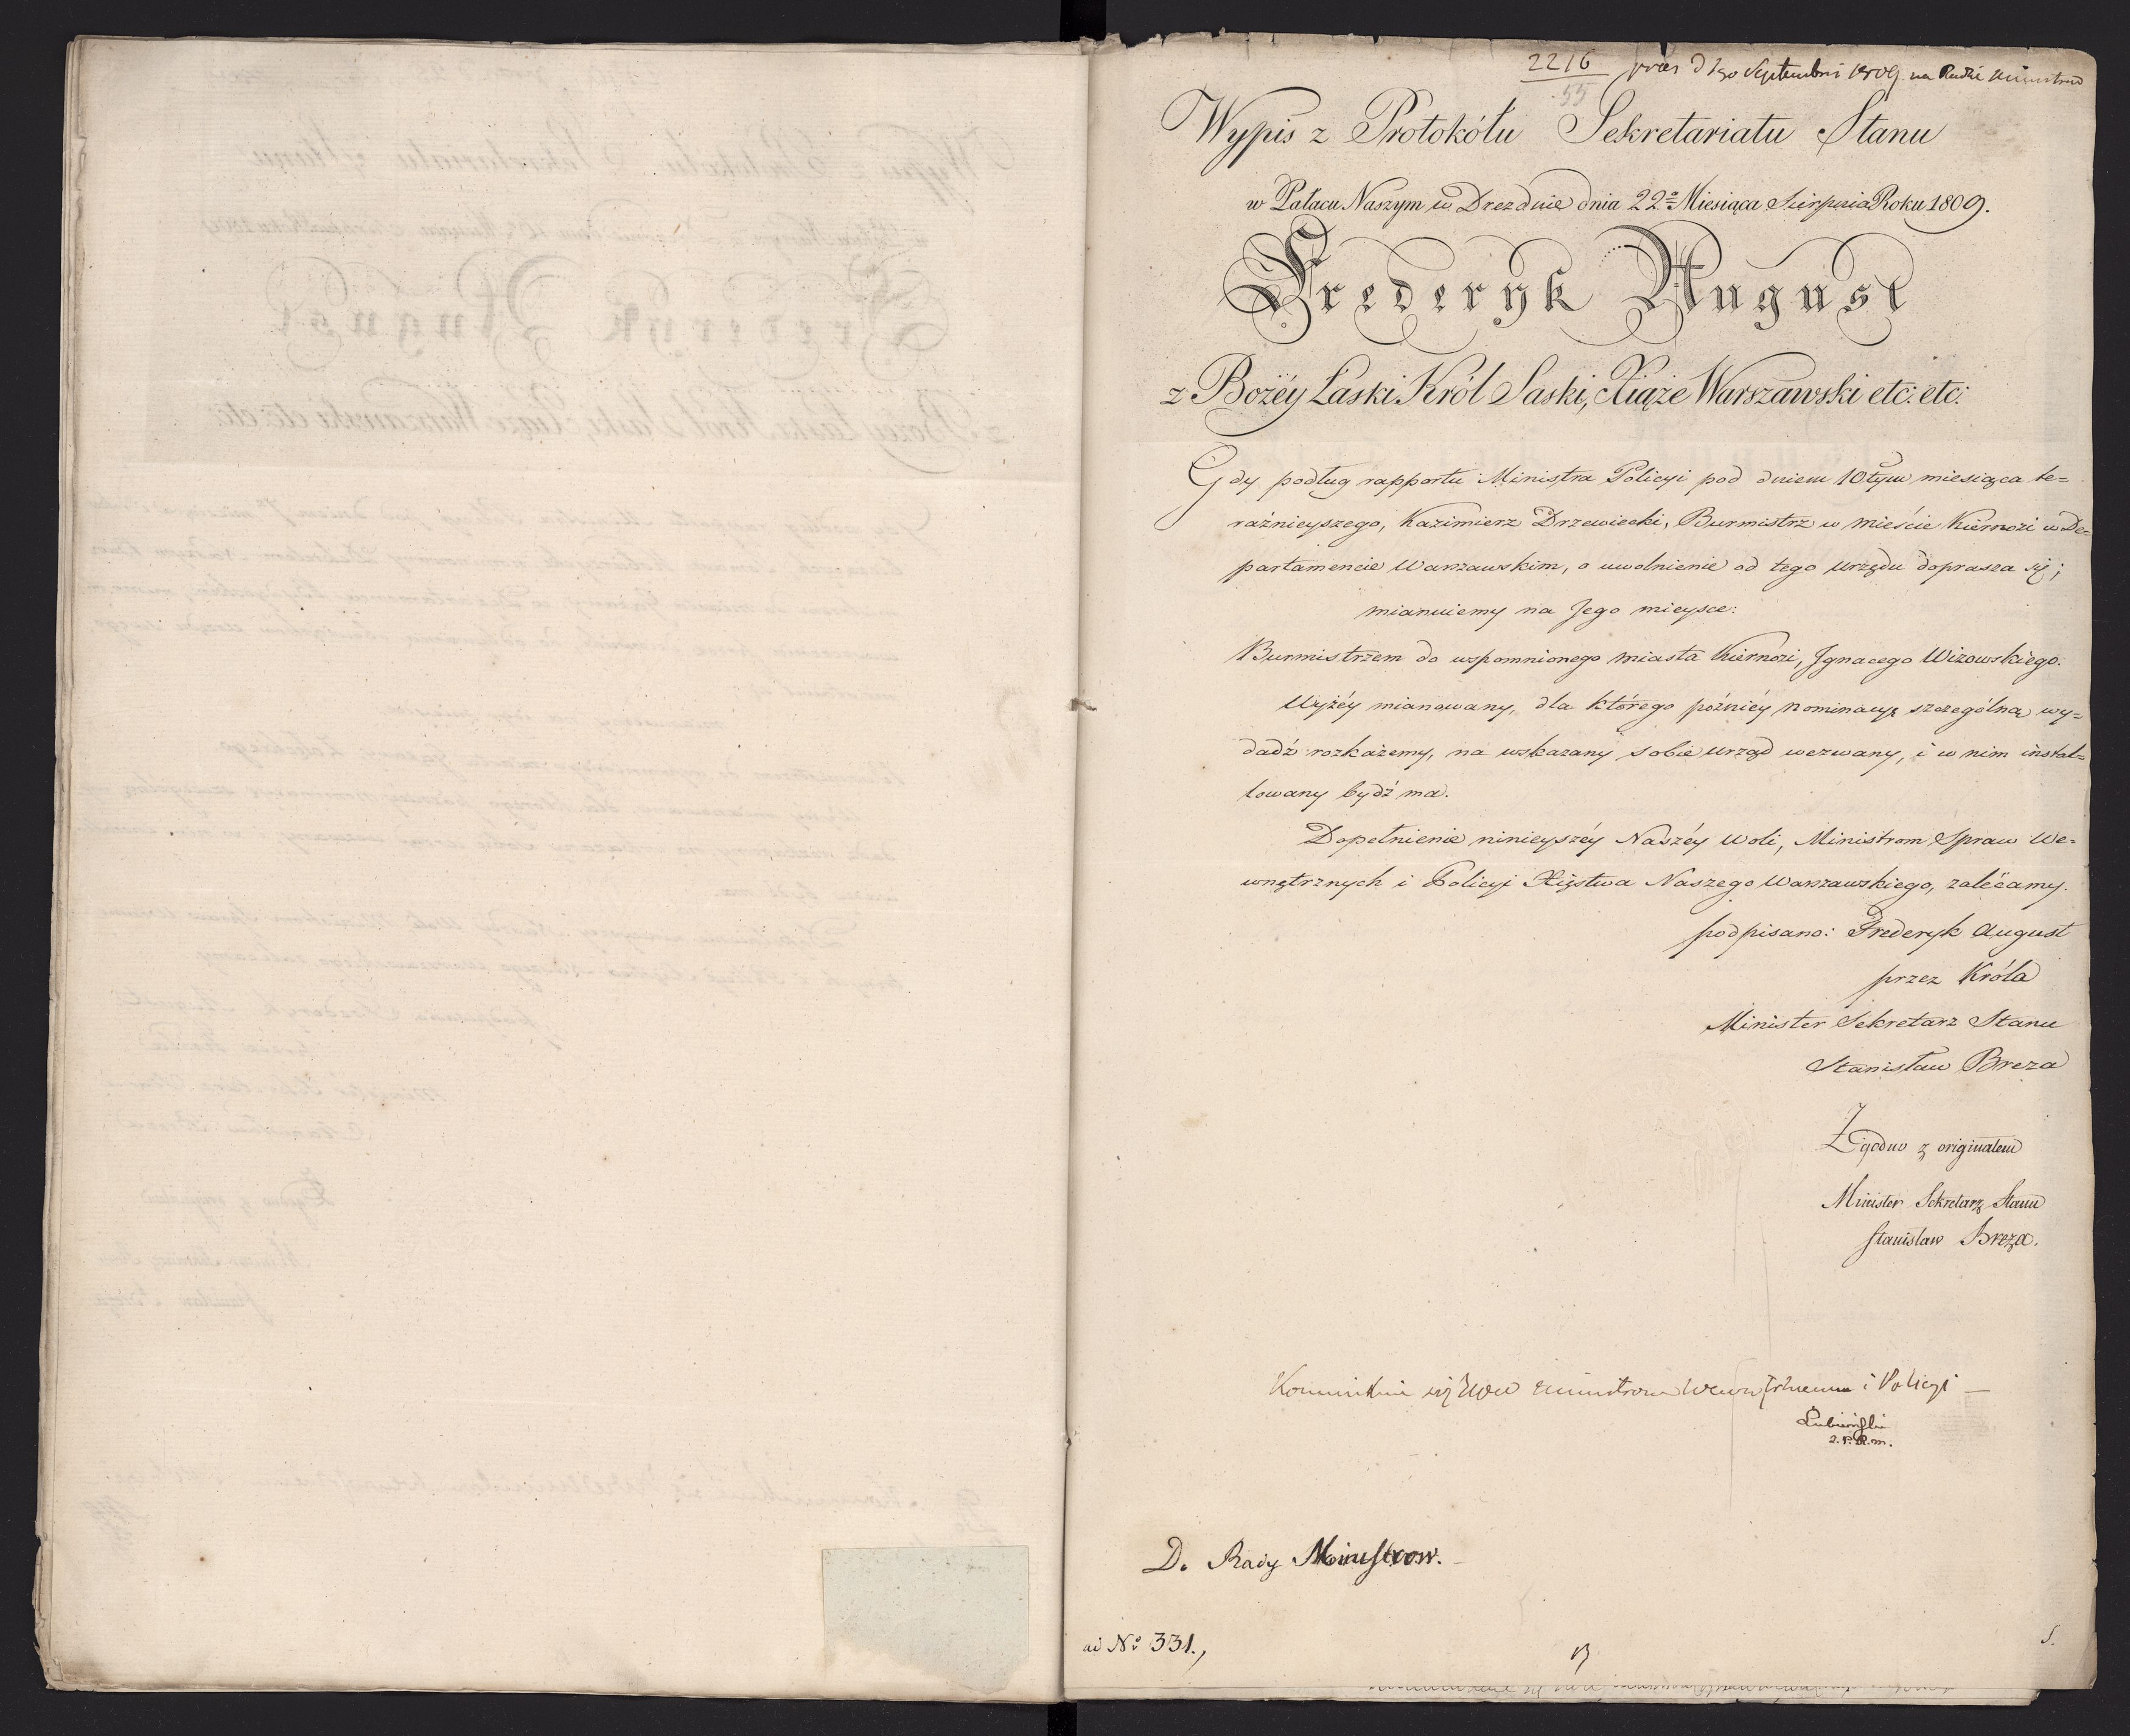 2216 pres d 1go Septembris 1809. na Radzie Ministrow
55
Wypis z Protokółu Sekretariatu Stanu
w Pałacu Naszym w Dreznie dnia 22º Miesiąca Sierpnia Roku 1809.
Frederyk August
z Bożéy Łaski Król Saski, Xiąże Warszawski etc: etc:
Gdy podług rapportu Ministra Policyi pod dniem 10tym miesiąca te=
raźnieyszego, Kazimierz Drzewiecki, Burmistrz w mieście Kiernozi w De=
partamencie Warszawskim, o uwolnienie od tego urzędu doprasza się;
mianuiemy na Jego mieysce:
Burmistrzem do wspomnionego miasta Kiernozi, Ignacego Wizowskiego.
Wyżéy mianowany, dla którego późniéy nominacyę szczególną wy=
dadź rozkażemy, na wskazany sobie urząd wezwany, i w nim instal=
lowany bydź ma.
Dopełnienie ninieyszéy Naszéy Woli, Ministrom Spraw We=
wnętrznych i Policyi Xięstwa Naszego Warszawskiego, zalécamy.
podpisano: Frederyk August
przez Króla
Minister Sekretarz Stanu
Stanisław Breza
Zgodno z originałem
Minister Sekretarz Stanu
Stanisław Breza.
ministrom i Policyi
Łubieński
2. P. R. m.
Do Rady Ministrow.
ad Nº 331.,
5.